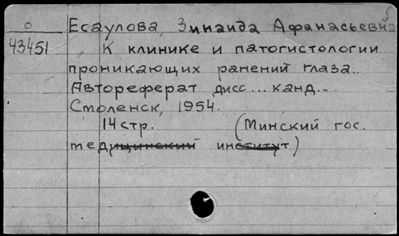 О Есаулова, Зинаида Афанасьевна
43451 К клинике и патогистологии
проникающих ранений глаза..
Автореферат дисс... канд...
Смоленск, 1954.
14 стр. (Минский гос.
медицинский институт)